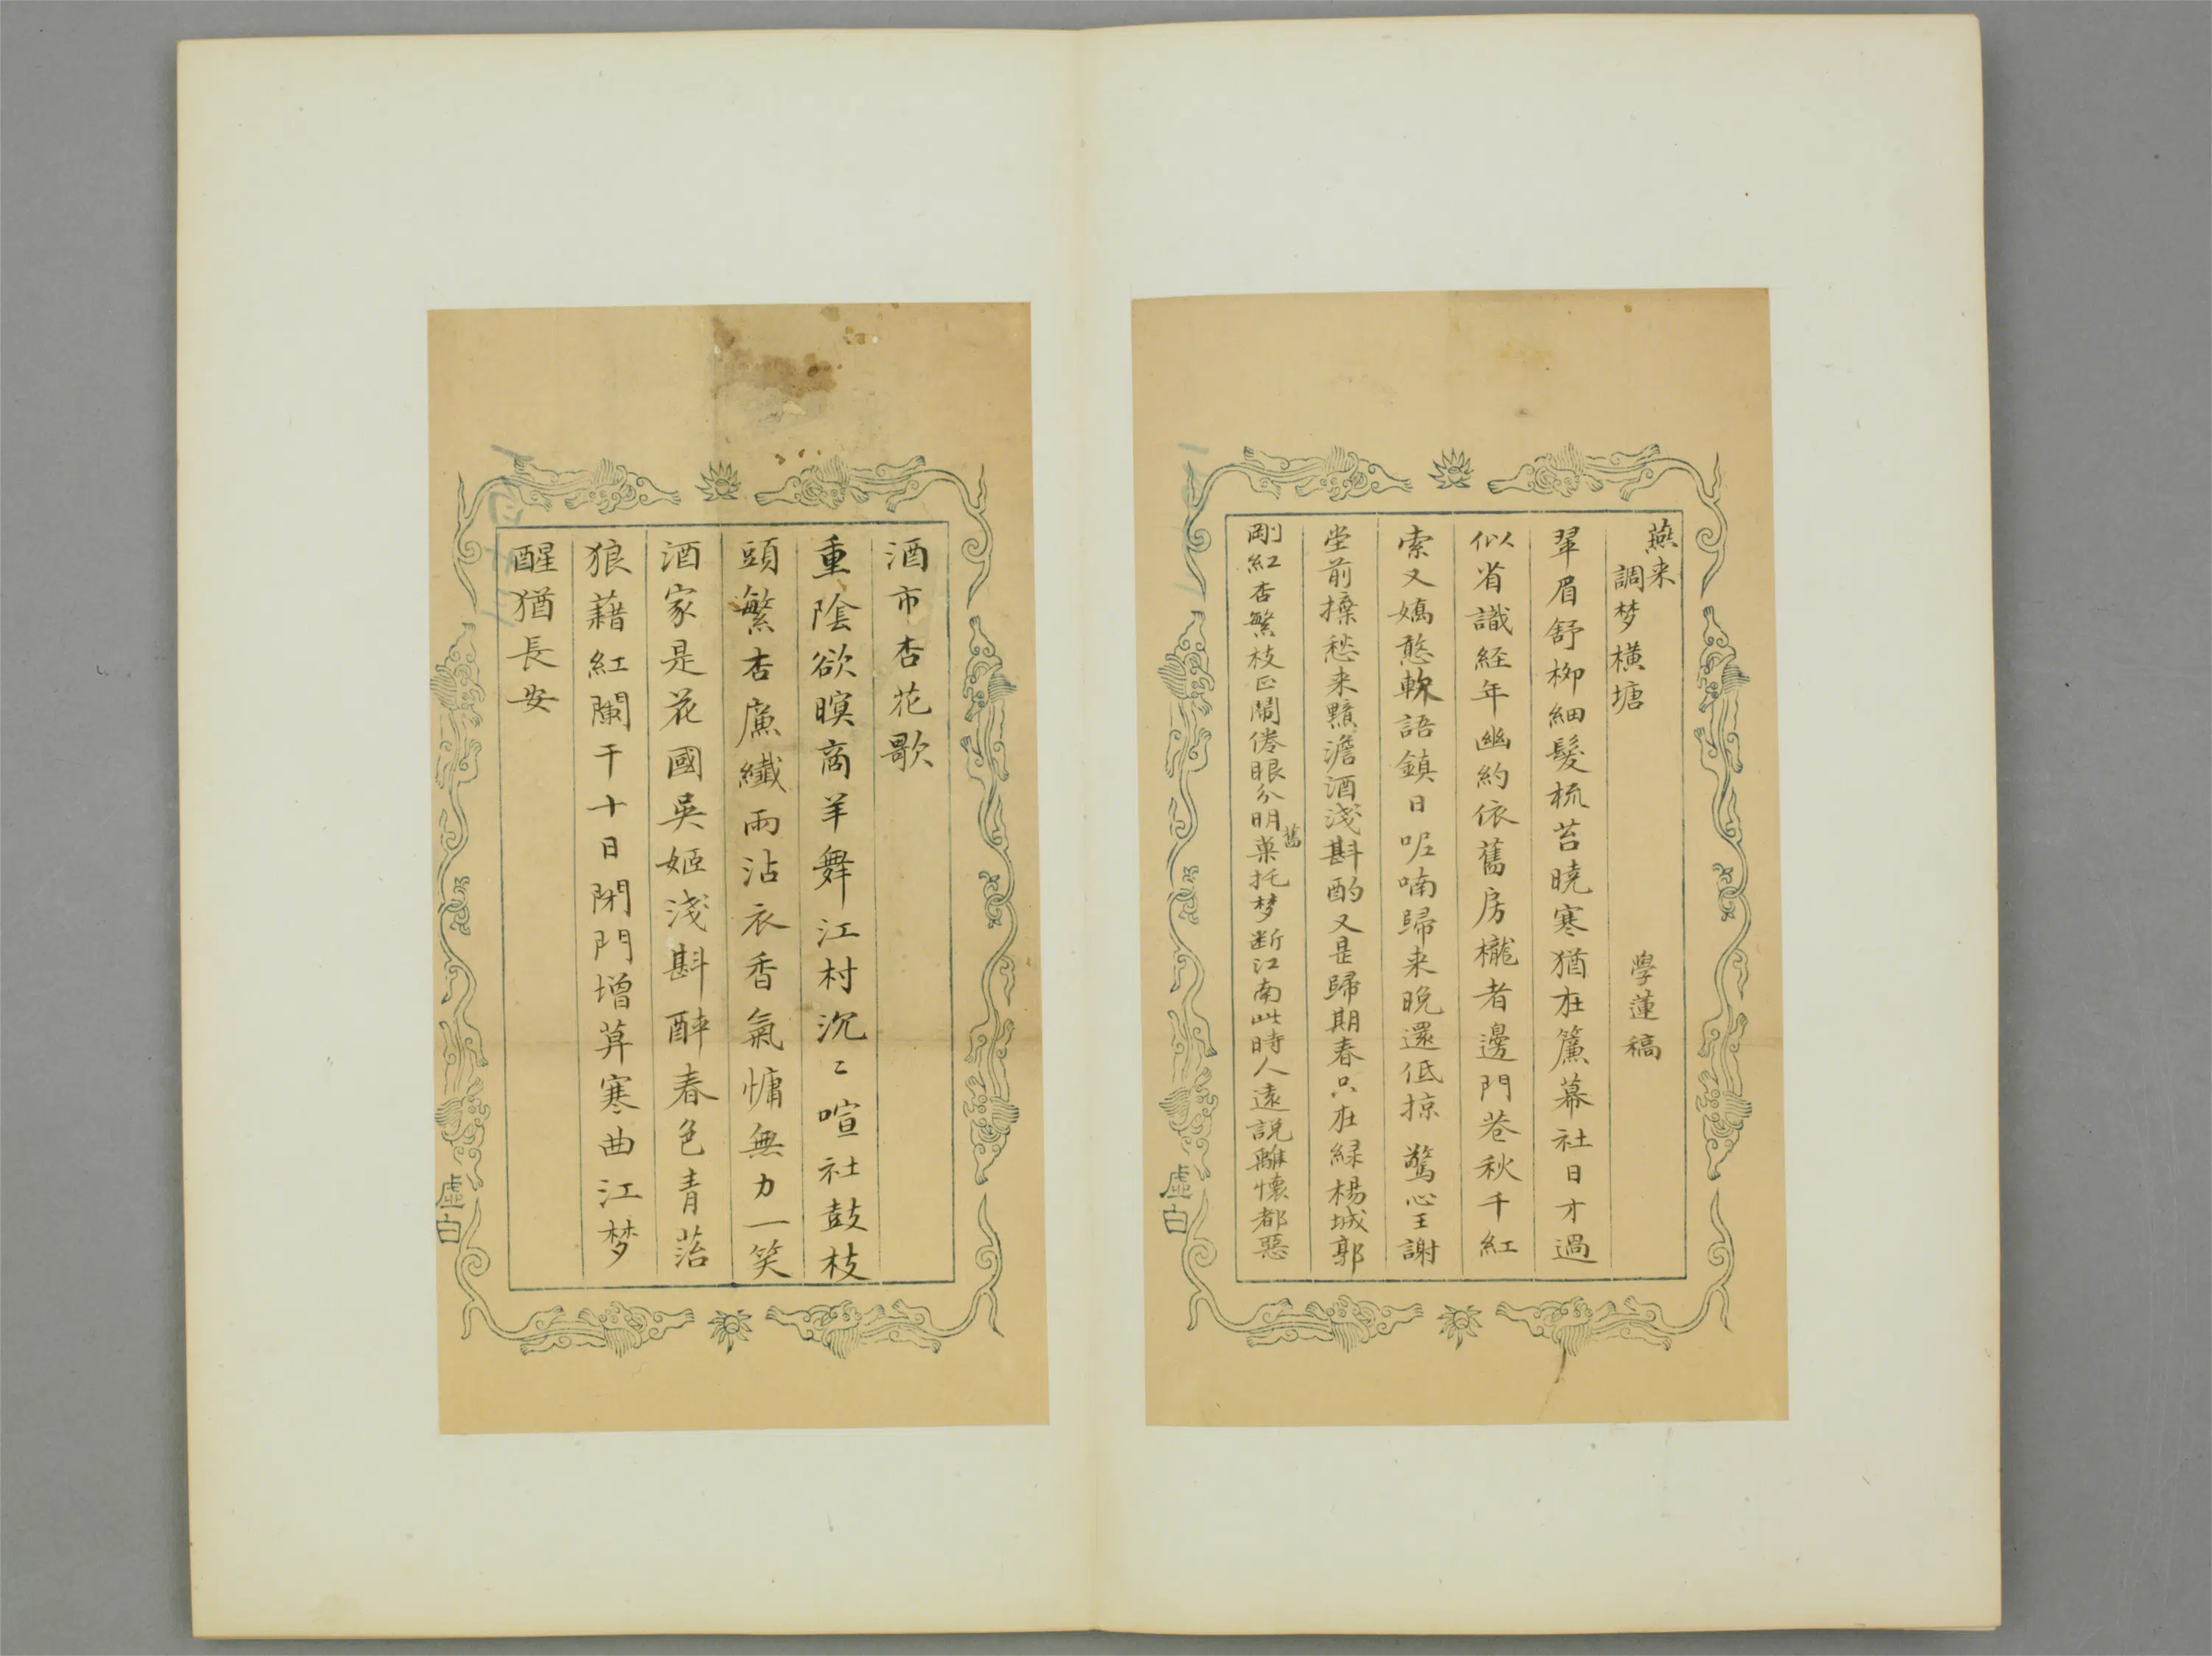 燕来
調梦横塘
學蓮稿
翠眉舒柳細髮梳苔曉寒猶在簾幕社日才過
似省識経年幽約依舊房櫳者邊門巷秋千紅
索又嬌憨軟語鎮日呢喃歸来晚還低掠驚心王謝
堂前操愁来黯澹酒淺斟酌又是歸期春只在緑楊城郭
剛紅杏繁枝正鬧倦眼分明舊菓托梦断江南此時人遠説離懷都惡
虛白
酒市杏花歌
重陰欲暝商羊舞江村沉〻喧社鼓枝
頭繁杏廉纖雨沾衣香氣慵無力一笑
酒家是花國吳姬淺斟醉春色青萡
狼藉紅闌干十日閉門增暮寒曲江梦
醒猶長安
虛白